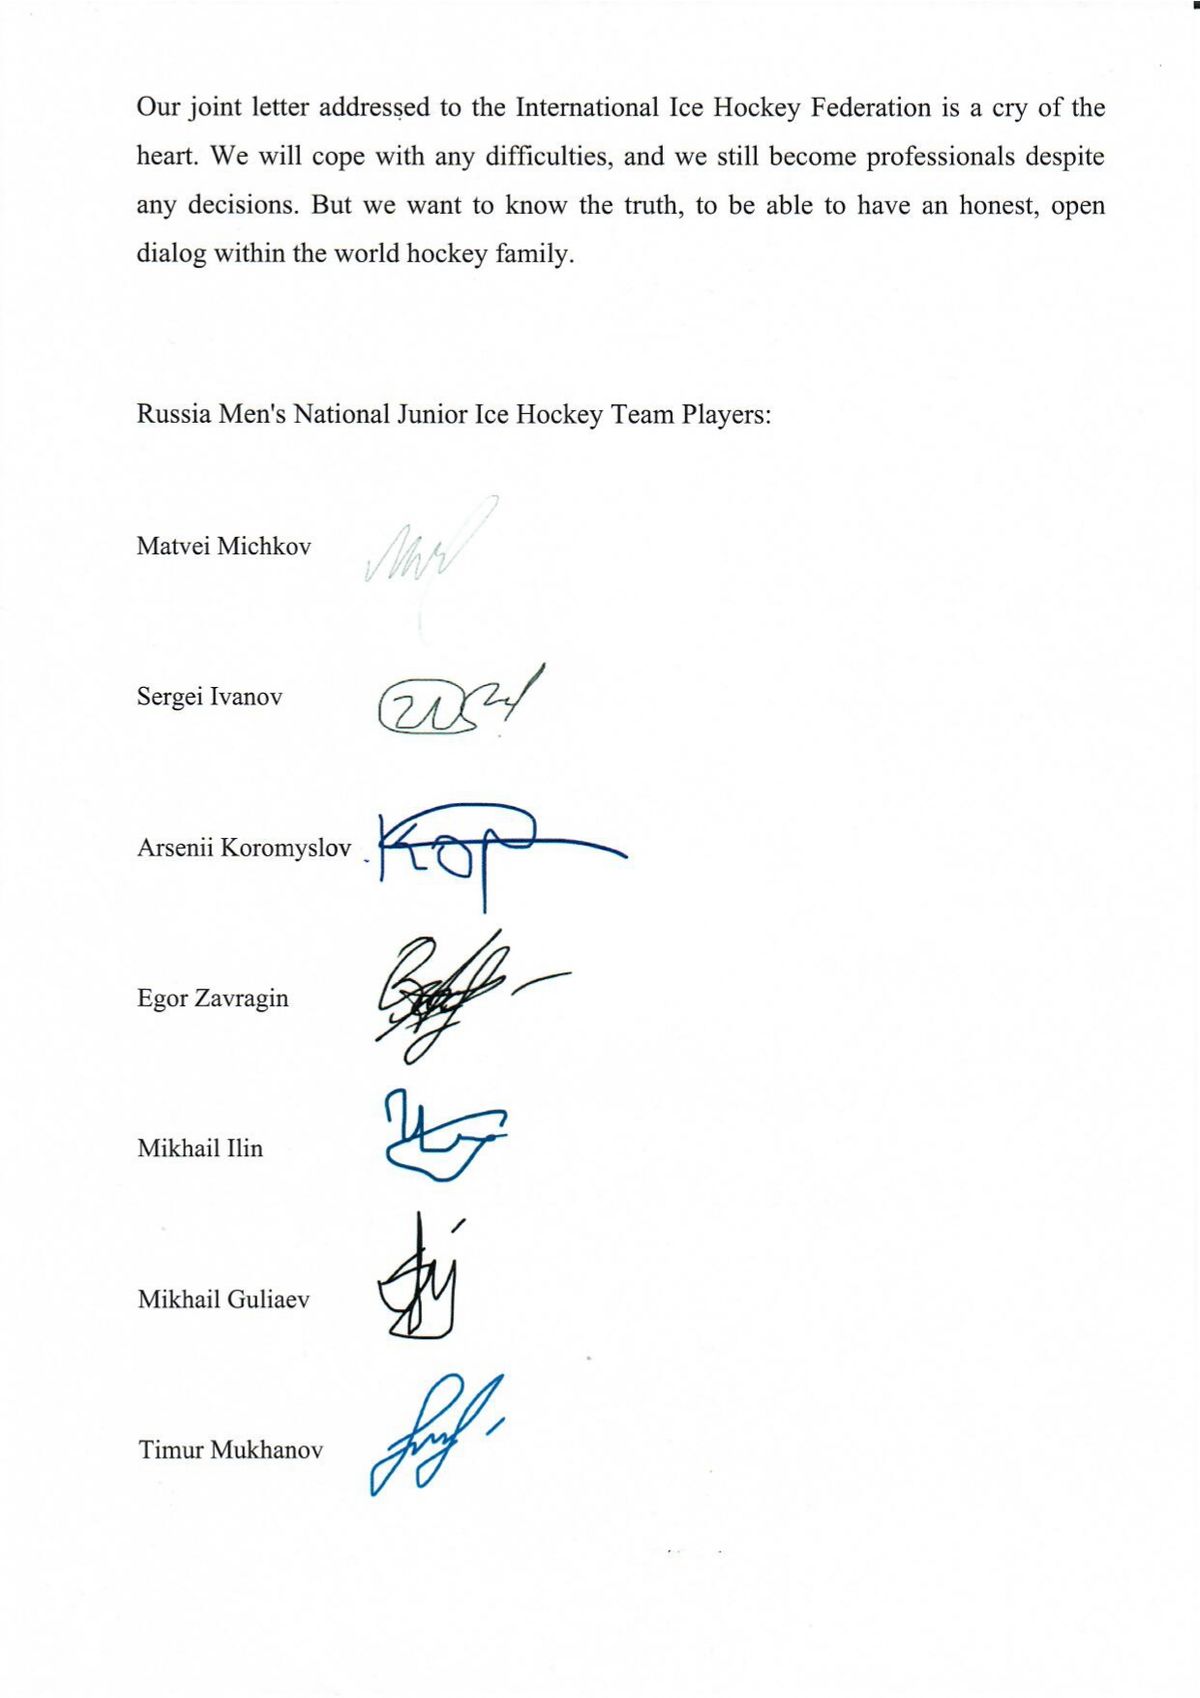 Our joint letter addressed to the International Ice Hockey Federation is a cry of the
heart. We will cope with any difficulties, and we still become professionals despite
any decisions. But we want to know the truth, to be able to have an honest, open
dialog within the world hockey family.
Russia Men's National Junior Ice Hockey Team Players:
Matvei Michkov
Sergei Ivanov
Arsenii Koromyslov
Egor Zavragin
Mikhail Ilin
Mikhail Guliaev
Timur Mukhanov